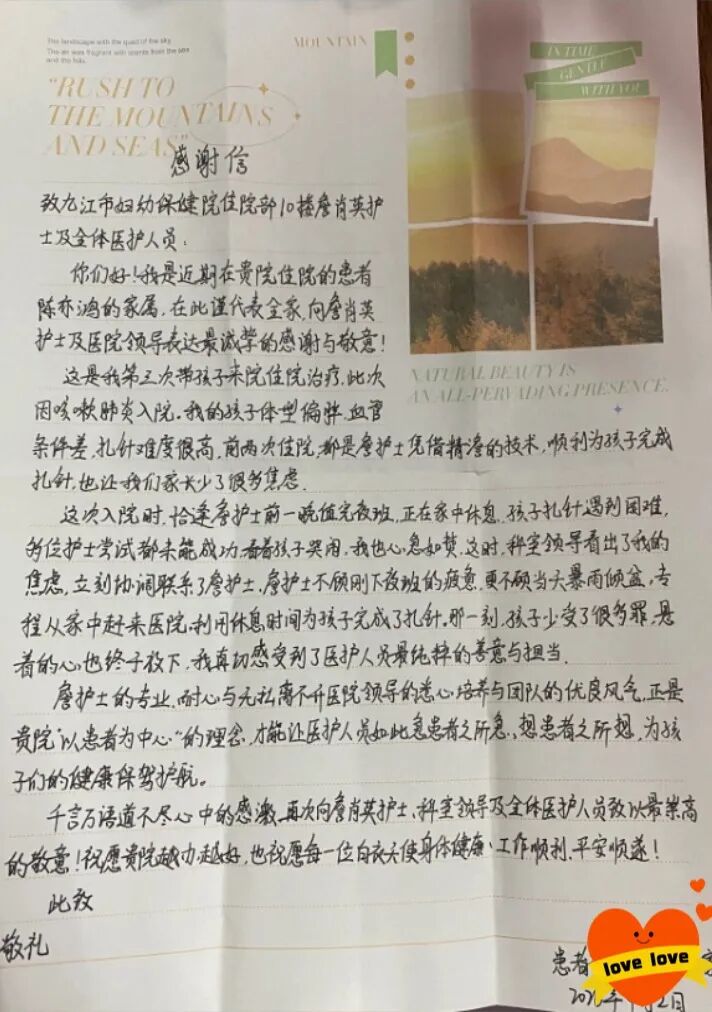 The landscape with the quiet of the sky.
The air was fragrant with scents from the sea
and the hills.
MOUNTAIN
IN TIME
GENTLE
WITH YOU
"RUSH TO
THE MOUNTAINS
AND SEAS"
感谢信
致九江市妇幼保健院住院部10楼詹肖英护
士及全体医护人员:
你们好!我是近期在贵院住院的患者
陈亦鸿的家属,在此谨代表全家,向詹肖英
护士及医院领导表达最诚挚的感谢与敬意!
NATURAL BEAUTY IS
AN ALL-PERVADING PRESENCE.
这是我第三次带孩子来院住院治疗,此次
因咳嗽肺炎入院。我的孩子体型偏胖,血管
条件差,扎针难度很高,前两次住院,都是詹护士凭借精湛的技术,顺利为孩子完成
扎针,也让我们家长少了很多焦虑.
这次入院时,恰逢詹护士前一晚值完夜班,正在家中休息,孩子扎针遇到困难,
多位护士尝试都未能成功,看着孩子哭闹,我也心急如焚,这时,科室领导看出了我的
焦虑,立刻协调联系了詹护士,詹护士不顾刚下夜班的疲惫,更不顾当天暴雨倾盆,专
程从家中赶来医院,利用休息时间为孩子完成了扎针。那一刻,孩子少受了很多罪,悬
着的心也终于放下,我真切感受到了医护人员最纯粹的善意与担当.
詹护士的专业、耐心与无私离不开医院领导的悉心培养与团队的优良风气,正是
贵院"以患者为中心"的理念,才能让医护人员如此急患者之所急、想患者之所想,为孩
子们的健康保驾护航。
千言万语道不尽心中的感激,再次向詹肖英护士、科室领导及全体医护人员致以最崇高
的敬意!祝愿贵院越办越好,也祝愿每一位白衣天使身体健康、工作顺利,平安顺遂!
此致
敬礼
患者
love love